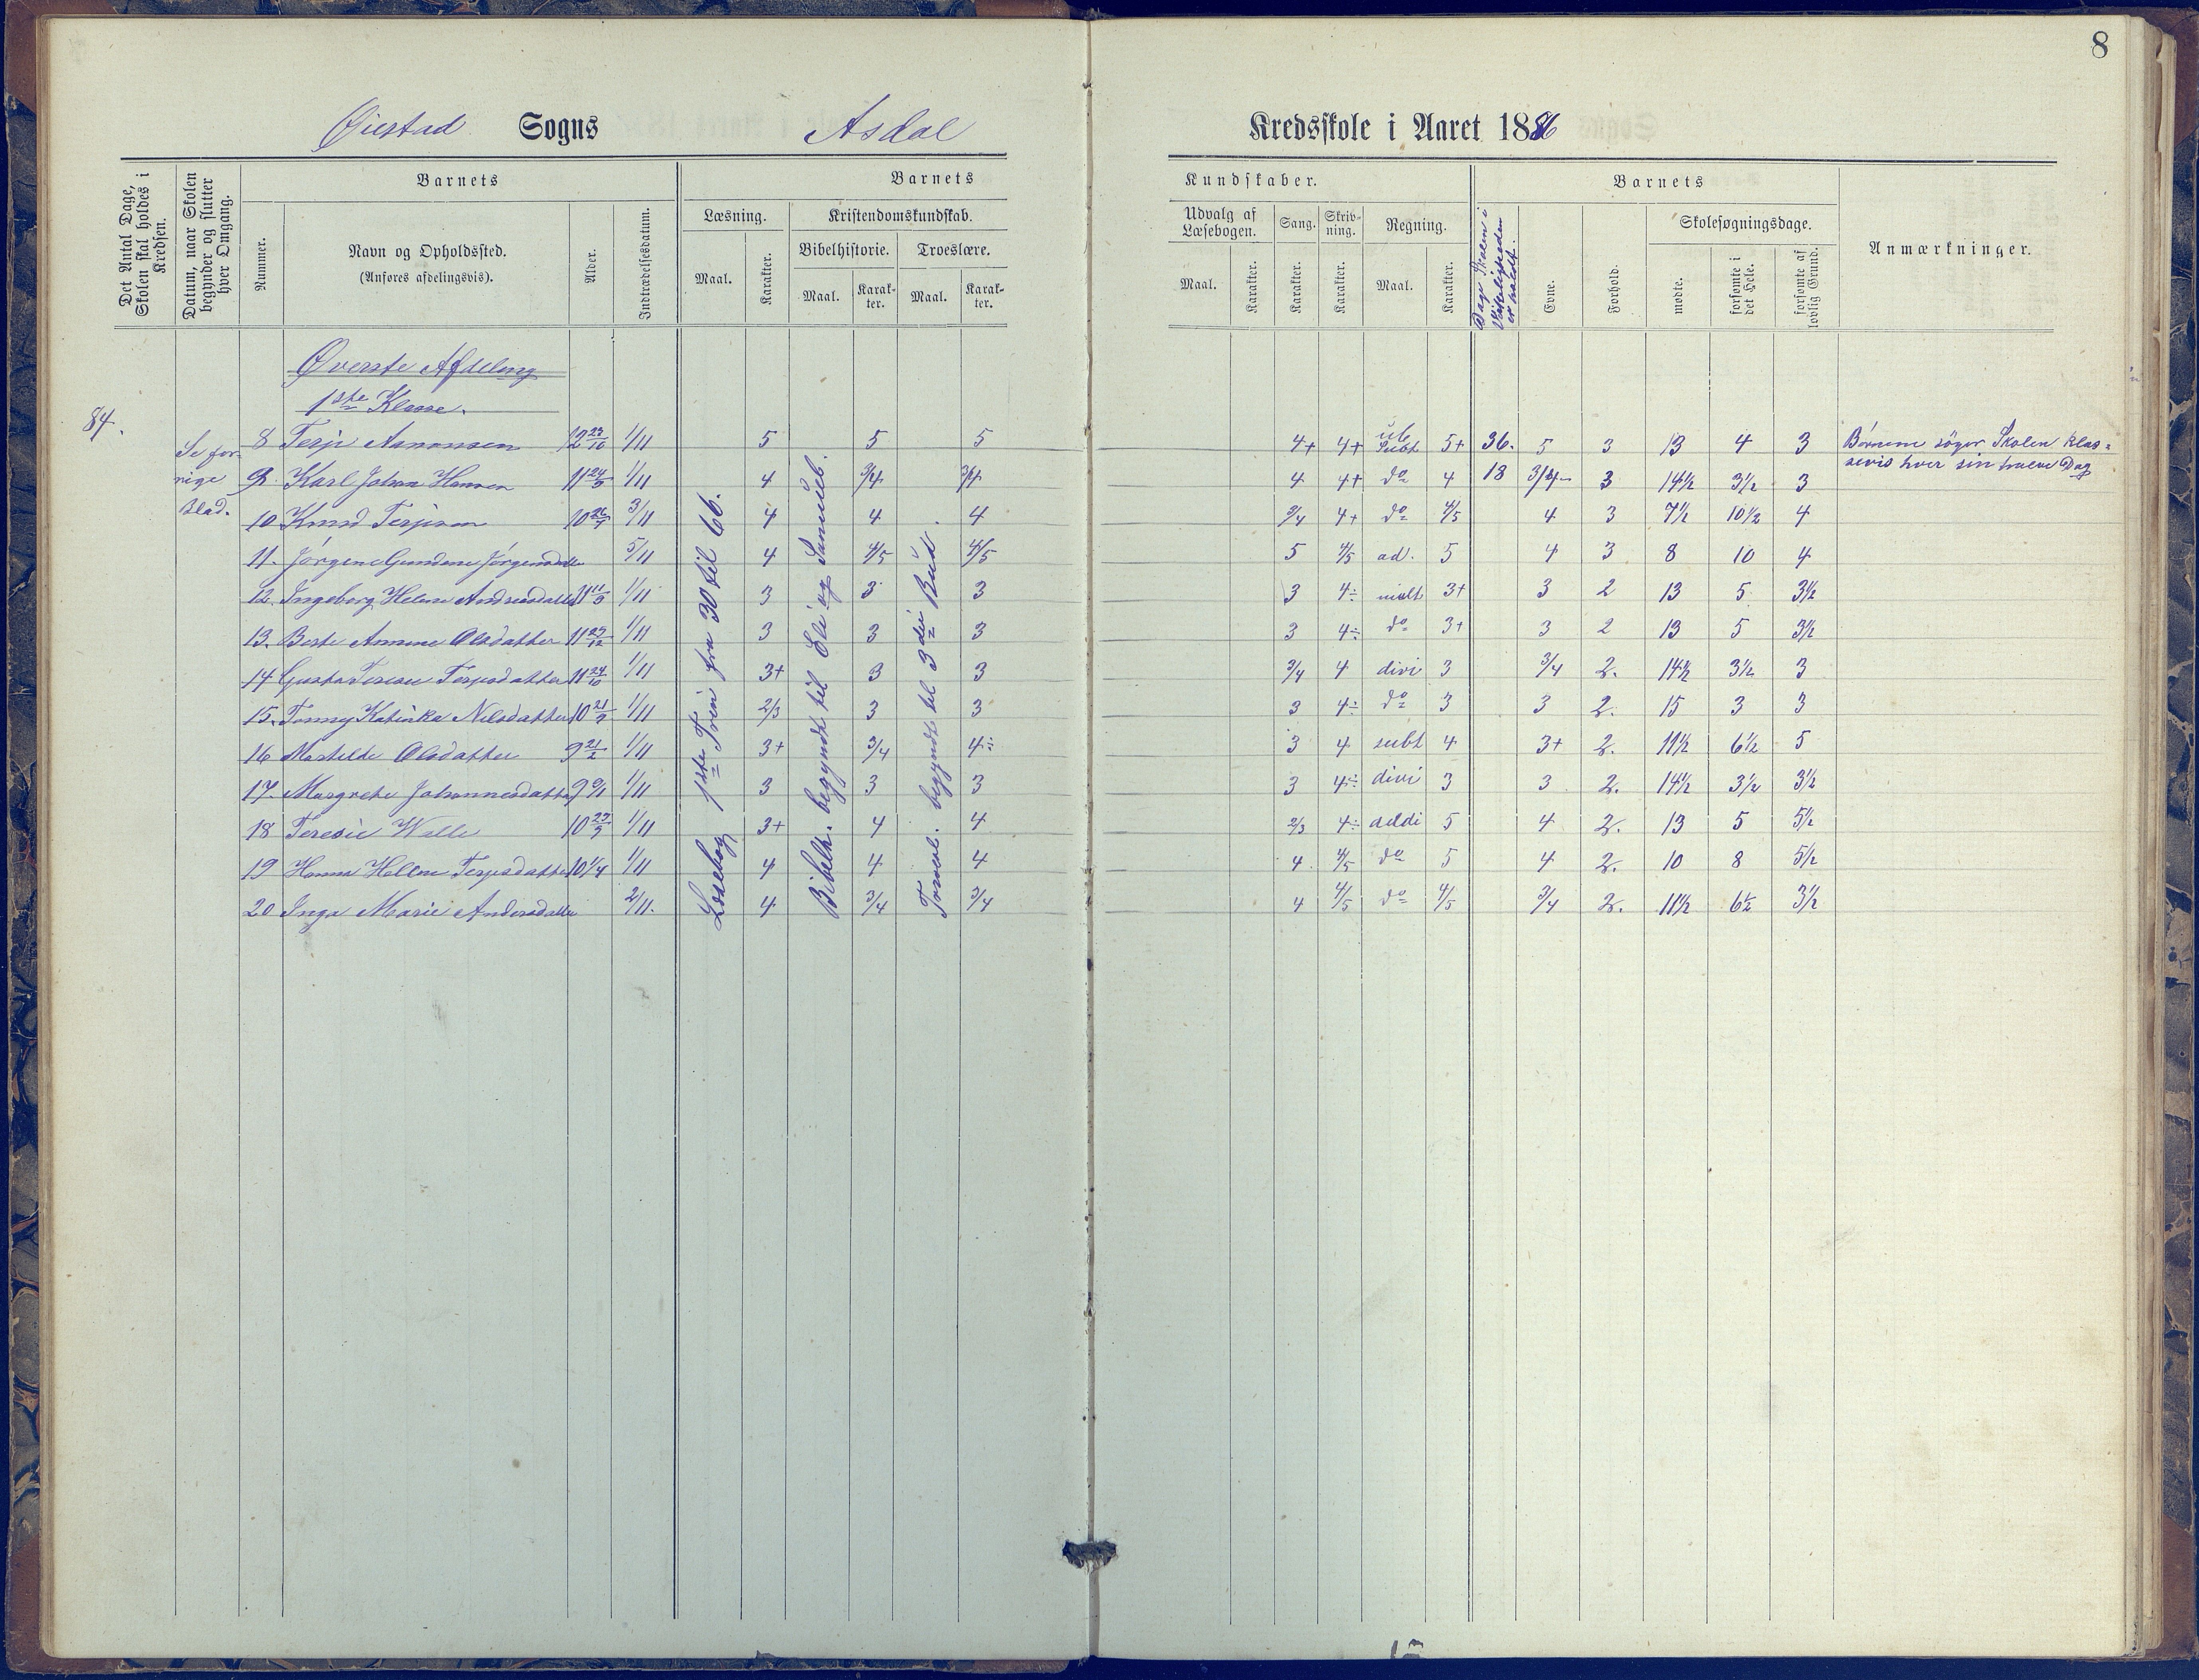 8
Øiestad Sogns Asdal Kredsskole i Aaret 1886
Det Antal Dage, Skolen skal holdes i Kredsen.
Datum, naar Skolen begynder og slutter hver Omgang.
Barnets
Nummer.
Navn og Opholdssted.
(Anføres afdelingsvis).
Alder.
Indtrædelsesdatum.
Barnets
Læsning.
Maal.
Karakter.
Kristendomskundskab.
Bibelhistorie.
Maal.
Karakter.
Troeslære.
Maal.
Karakter.
Kundskaber.
Udvalg af Læsebogen.
Maal.
Karakter.
Sang.
Karakter.
Skrivning.
Karakter.
Regning.
Maal.
Karakter.
Dage Skolen i Virkeligheden er holdt.
Barnets
Evne.
Forhold.
Skolesøgningsdage.
mødte.
forsømte i det Hele.
forsømte af lovlig Grund.
Anmærkninger.
Øverste Afdeling
1ste Klasse.
84.
Se forrige Blad.
Læsebog 1ste Trin fra 30 til 66.
Bibelh. begyndt til Eli og Samueb.
Troesl. begyndt til 3die Bud.
8 Terje Aanonsen 12 23/10 1/11 5 5 5 4+ 4+ Subt 5+ 36. 5 3 13 4 3 Børnene søger Skolen klas=
9. Karl Johan Hansen 11 24/5 1/11 4 3/4 3/4 4 4+ do 4 18 3/4 3 14½ 3½ 3 sevis hver sin halve Dag
10 Knud Terjesen 10 26/7 3/11 4 4 4 3/4 4+ do 4/5 4 3 7½ 10½ 4
11. Jørgine Gundine Jørgensdatter 5/11 4 4/5 4/5 5 4/5 ad. 5 4 3 8 10 4
12. Ingeborg Helene Andreasdatter 11 11/5 1/11 3 3 3 3 4÷ mult 3+ 3 2 13 5 3½
13. Berte Annine Olsdatter 11 25/12 1/11 3 3 3 3 4÷ do 3+ 3 2 13 5 3½
14 Gusta Terese Terjesdatter 11 24/10 1/11 3+ 3 3 3/4 4 divi 3 3/4 2. 14½ 3½ 3
15. Tonny Katinka Nilsdatter 10 21/9 1/11 2/3 3 3 3 4÷ do 3 3 2. 15 3 3
16 Martilde Olsdatter 9 21/2 1/11 3+ 3/4 4÷ 3 4 subt 4 3+ 2. 11½ 6½ 5
17. Margrete Johannesdatter 9 9/11 1/11 3 3 3 3 4÷ divi 3 3 2. 14½ 3½ 3½
18 Teresie Walle 10 27/5 1/11 3+ 4 4 2/3 4÷ addi 5 4 2. 13 5 5½
19 Hanna Helline Terjesdatter 10 1/4 1/11 4 4 4 4 4/5 do 5 4 2. 10 8 5½
20 Inga Marie Andersdatter 2/11. 4 3/4 3/4 4 4/5 do 4/5 3/4 2. 11½ 6½ 3½